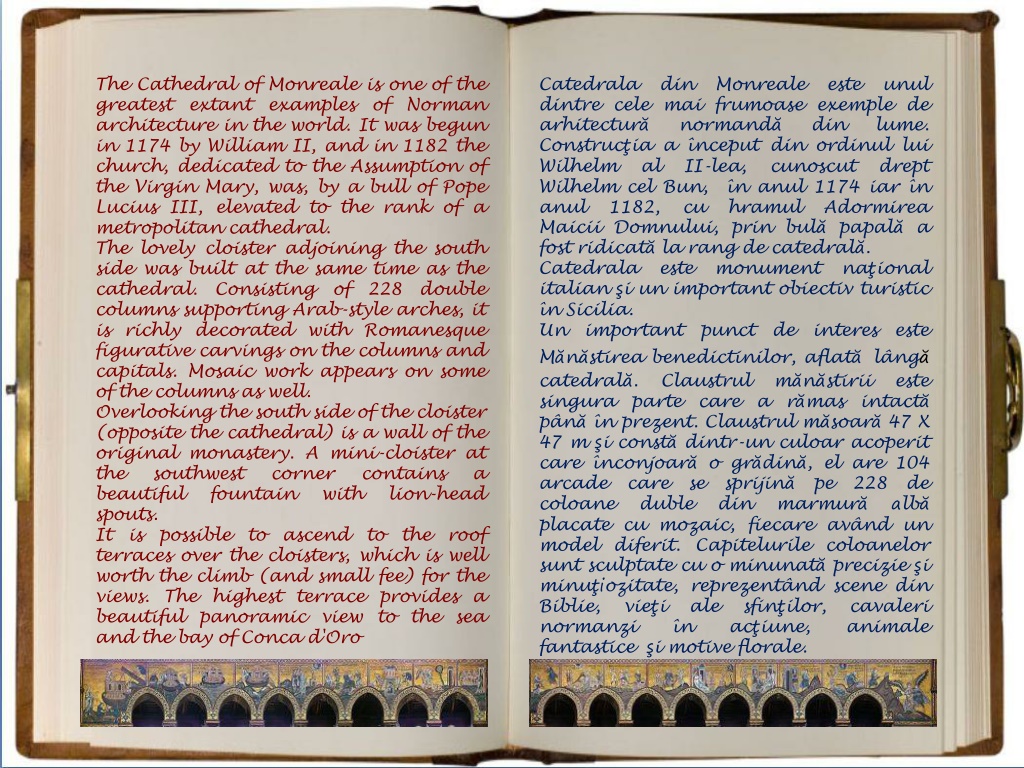 The Cathedral of Monreale is one of the
greatest extant examples of Norman
architecture in the world. It was begun
in 1174 by William II, and in 1182 the
church, dedicated to the Assumption of
the Virgin Mary, was, by a bull of Pope
Lucius III, elevated to the rank of a
metropolitan cathedral.
The lovely cloister adjoining the south
side was built at the same time as the
cathedral. Consisting of 228 double
columns supporting Arab-style arches, it
is richly decorated with Romanesque
figurative carvings on the columns and
capitals. Mosaic work appears on some
of the columns as well.
Overlooking the south side of the cloister
(opposite the cathedral) is a wall of the
original monastery. A mini-cloister at
the southwest corner contains a
beautiful fountain with lion-head
spouts.
It is possible to ascend to the roof
terraces over the cloisters, which is well
worth the climb (and small fee) for the
views. The highest terrace provides a
beautiful panoramic view to the sea
and the bay of Conca d'Oro
Catedrala din Monreale este unul
dintre cele mai frumoase exemple de
arhitectură normandă din lume.
Construcţia a început din ordinul lui
Wilhelm al II-lea, cunoscut drept
Wilhelm cel Bun, în anul 1174 iar în
anul 1182, cu hramul Adormirea
Maicii Domnului, prin bulă papală a
fost ridicată la rang de catedrală.
Catedrala este monument naţional
italian şi un important obiectiv turistic
în Sicilia.
Un important punct de interes este
Mănăstirea benedictinilor, aflată lângă
catedrală. Claustrul mănăstirii este
singura parte care a rămas intactă
până în prezent. Claustrul măsoară 47 X
47 m şi constă dintr-un culoar acoperit
care înconjoară o grădină, el are 104
arcade care se sprijină pe 228 de
coloane duble din marmură albă
placate cu mozaic, fiecare având un
model diferit. Capitelurile coloanelor
sunt sculptate cu o minunată precizie şi
minuţiozitate, reprezentând scene din
Biblie, vieţi ale sfinţilor, cavaleri
normanzi în acţiune, animale
fantastice şi motive florale.